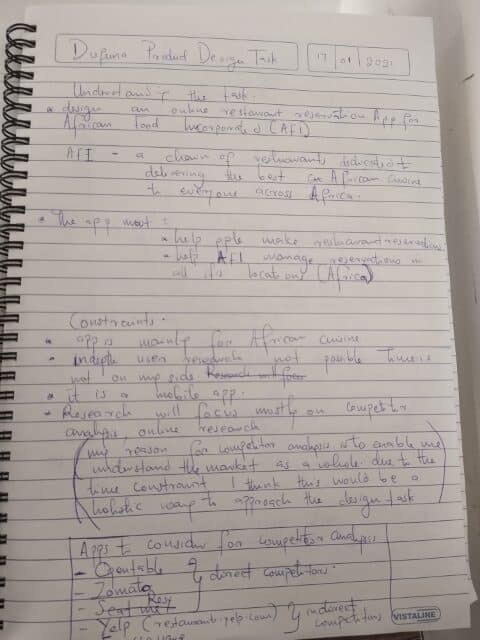 Dufuna Product Design Task
17 | 01 | 2021
Understanding the task.
design an online restaurant reservation App for
African food Incorporated (AFI)
AFI - a chain of restaurants dedicated
delivering the best African cuisine
to everyone across Africa.
The app must :
help pple make restaurant reservations
help AFI manage reservations in
all its locations (Africa)
Constraints.
app is mainly for African cuisine
Indepth user research not possible Time is
not on my side. Research will focus
it is a mobile app.
Research will focus mostly on competitor
analysis, online research
my reason for competitor analysis is to enable me
understand the market as a whole. due to the
time constraint I think this would be a
holistic way to approach the design task
Apps to consider for competitor analysis
- Opentable
- Zomato } direct competitors.
- Seat me Resy
- Yelp (restaurants.yelp.com) } indirect
competitors
VISTALINE